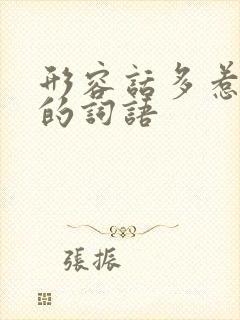 形容話多惹
的詞語
張振